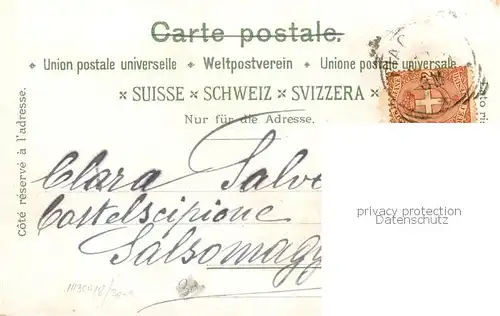 Carte postale.
Union postale universelle Weltpostverein Unione postale universale
× SUISSE × SCHWEIZ × SVIZZERA ×
Nur für die Adresse.
Côté réservé à l'adresse.
Clara Salv
Costelscipione
Salsomagg
privacy protection
Datenschutz